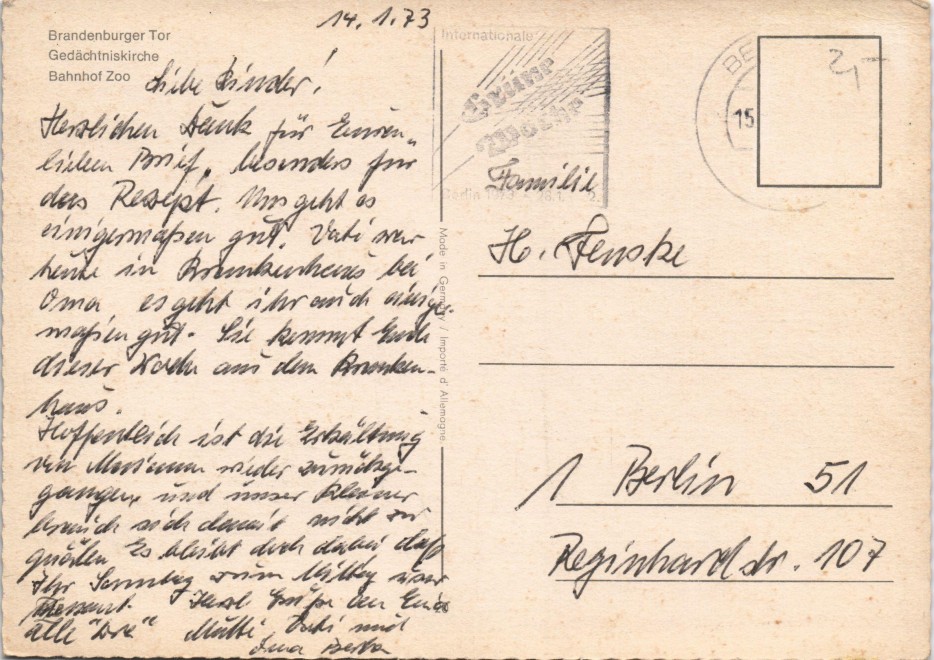 14.1.73
Brandenburger Tor
Gedächtniskirche
Bahnhof Zoo
Liebe Kinder!
Herzlichen Dank für Euren
lieben Brief, besonders für
das Rezept. Uns geht es
einigermaßen gut. Vati war
heute in Krankenhaus bei
Oma es geht ihr auch einige-
maßen gut. Sie kommt Ende
dieser Woche aus dem Kranken-
haus.
Hoffentlich ist die Erkältung
von wieder zurückge-
gangen und unser Kleiner
brauch sich damit nicht zu
quälen Es bleibt doch dabei daß
Ihr Sonntag zum Mittag
Herzl Grüße an Euch
alle "Drei" Mutti Vati und
Oma
Internationale
Grüne
Woche
Berlin 1973
BE
15
2,-
Made in Germany / Importé d'Allemagne
Familie
H. Fenske
1 Berlin 51
Reginhardstr. 107